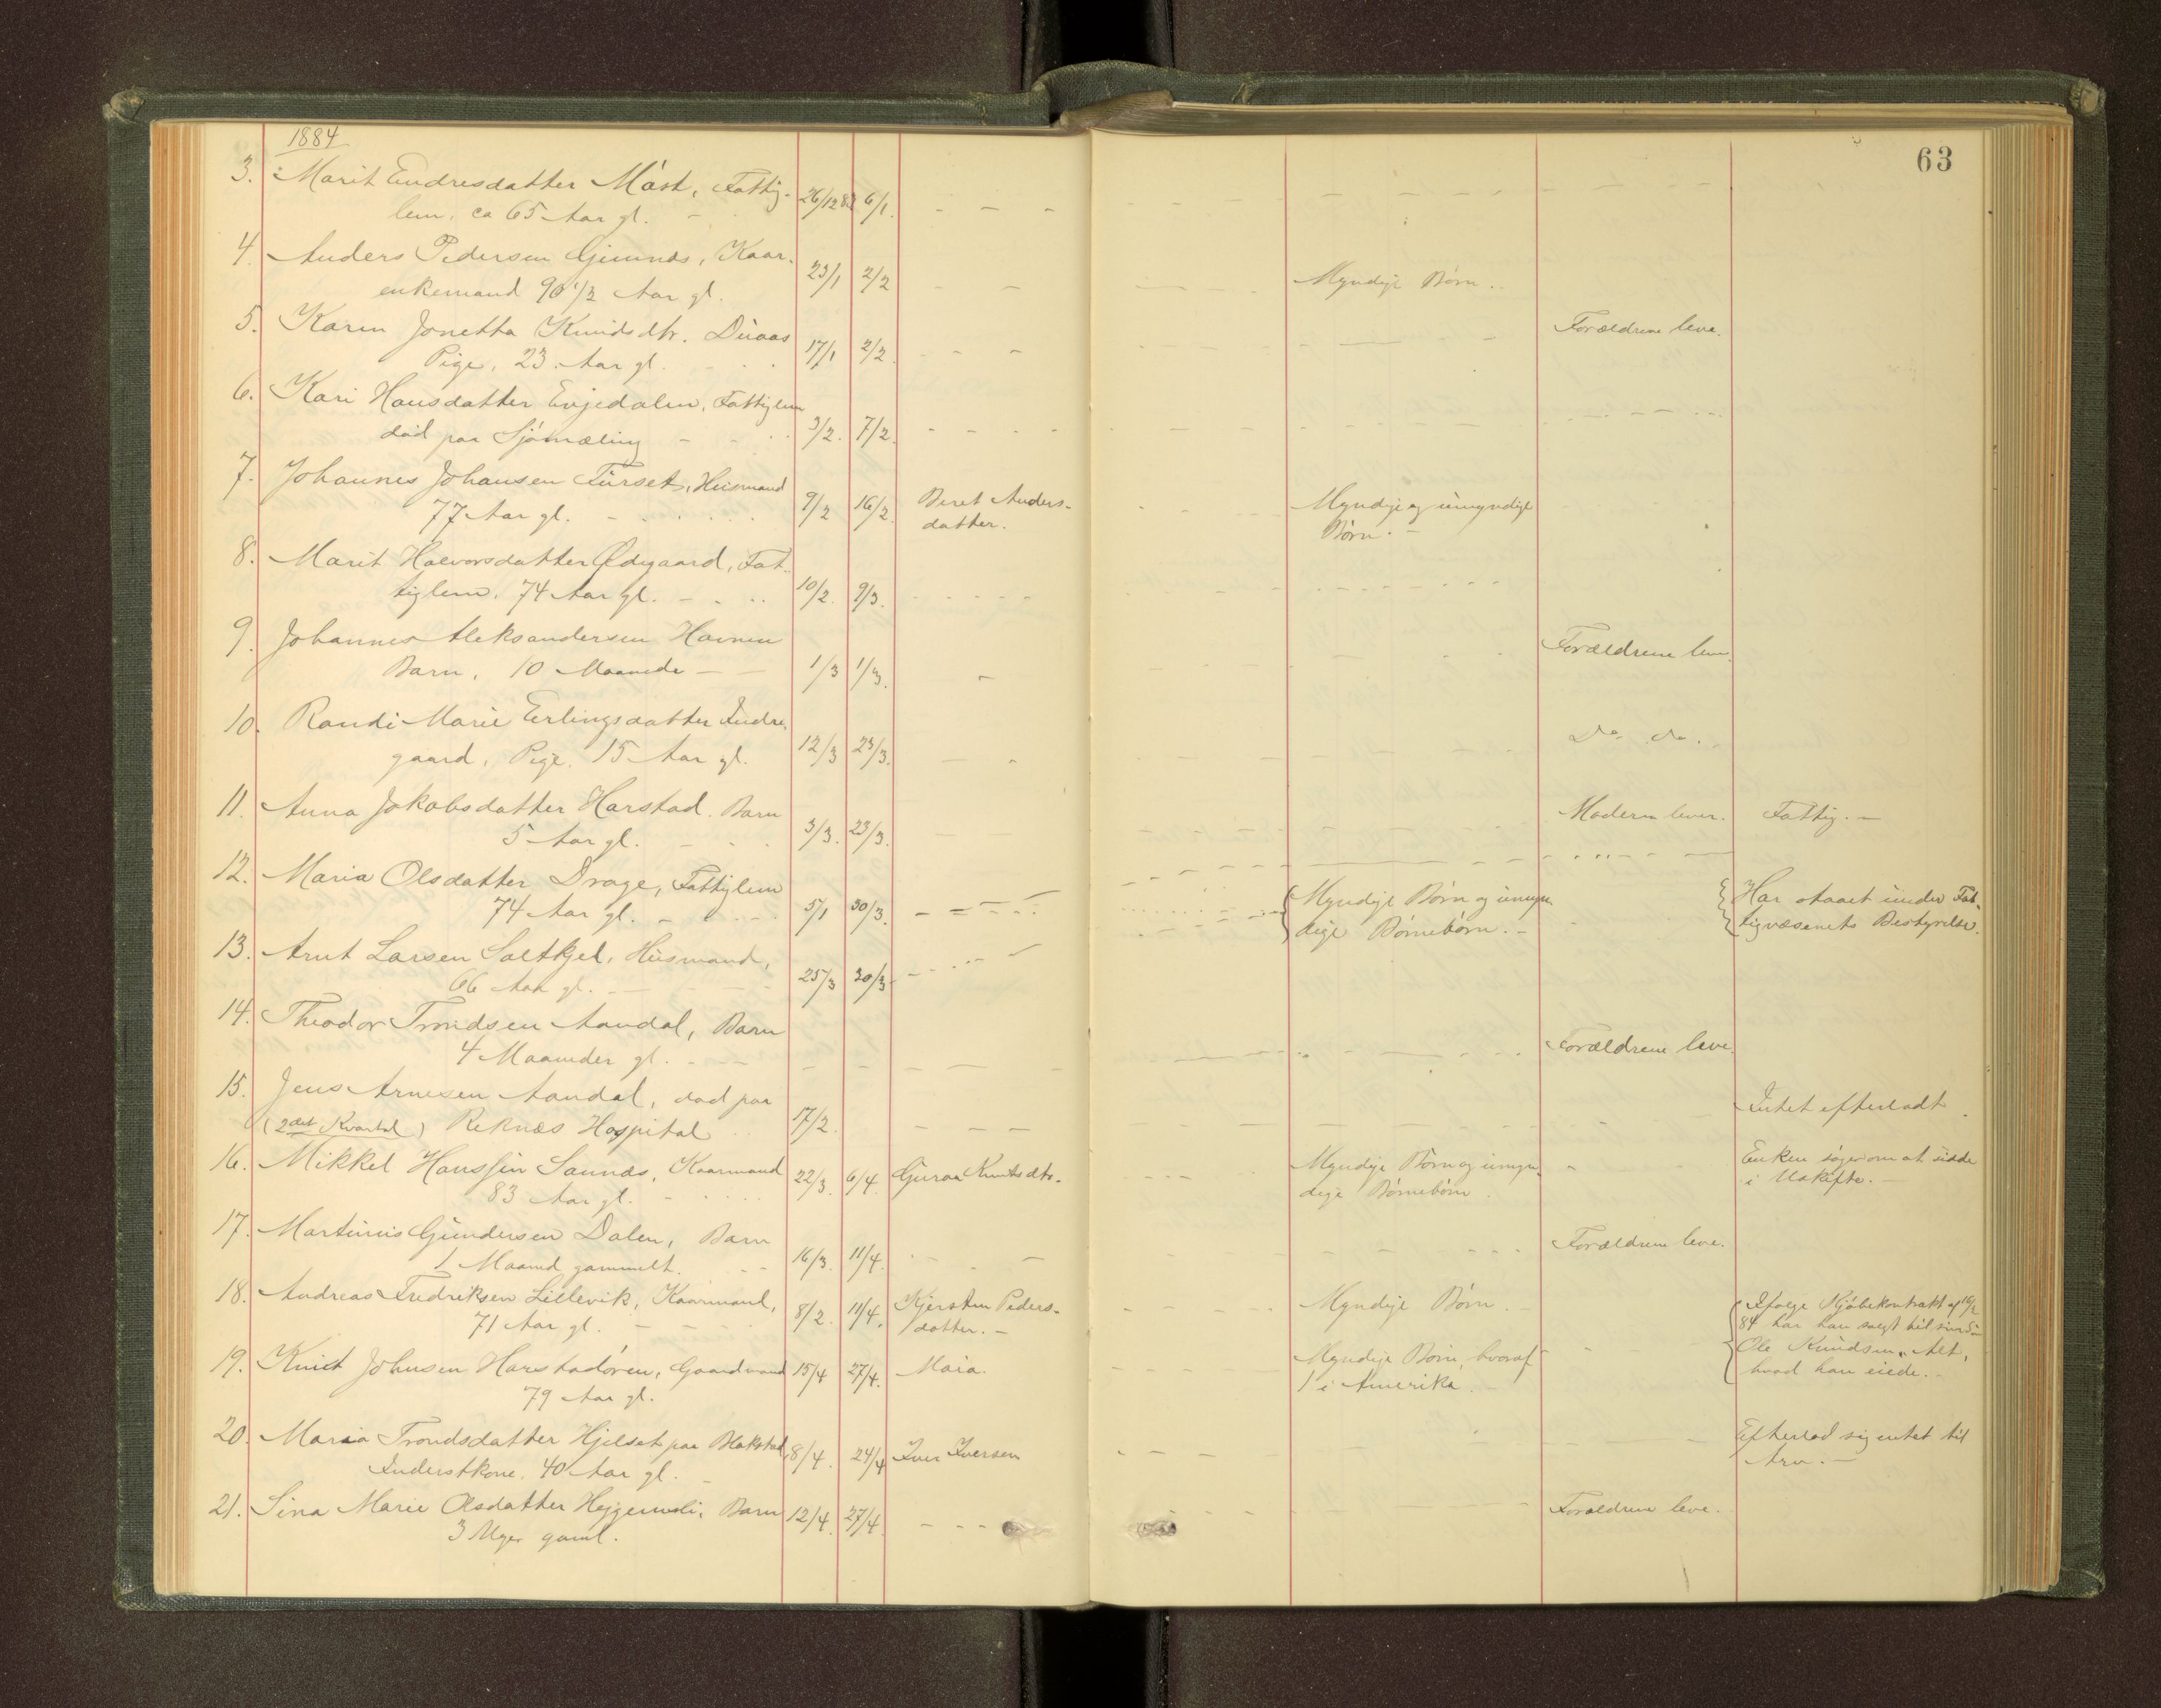 63
1884
3. Marit Endresdatter Måst, Fattig- 26/12 83 6/1.
lem, ca 65 Aar gl.
4. Anders Pedersen Gjennæs, Kaar- 23/1 2/2 Myndige Børn.
enkemand 90 1/2 Aar gl.
5. Karen Jonetta Knudsdtr. Duaas 17/1 2/2. Forældrene leve.
Pige, 23 Aar gl.
6. Kari Hansdatter Engedalen, Fattiglem 3/2. 7/2.
død paa Sjømæling
7. Johannes Johansen Furset, Husmand 9/2 16/2. Beret Anders- Myndige og umyndige
77 Aar gl. datter. Børn.
8. Marit Halvorsdatter Ødegaard, Fat- 10/2. 9/3.
tiglem, 74 Aar gl.
9. Johannes Aleksandersen Havnen 1/3 1/3. Forældrene leve.
Barn, 10 Maaneder
10. Randi Marie Erlingsdatter Indre- 12/3 23/3. Do. do.
gaard, Pige, 15 Aar gl.
11. Anna Jakobsdatter Harstad. Barn 3/3. 23/3. Moderen lever. Fattig.
5 Aar gl.
12. Maria Olsdatter Drage, Fattiglem 5/1 30/3. Myndige Børn og umyn- Har staaet under Fat-
74 Aar gl. dige Børnebørn. tigvæsenets Bestyrelse.
13. Arnt Larsen Saltkjel, Husmand, 25/3 30/3
66 Aar gl.
14. Theodor Trondsen Aandal, Barn Forældrene leve.
4 Maaneder gl.
15. Jens Arnesen Aandal, død paa 17/2. Intet efterladt.
(2det Kvartal) Reknæs Hospital
16. Mikkel Hanssen Sannæs, Kaarmand 22/3. 6/4. Guroa Knutsdtr. Myndige Børn og umyn- Enken søger om at sidde
83 Aar gl. dige Børnebørn. i Uskifte.
17. Martinus Gundersen Dalen, Barn 16/3. 11/4. Forældrene leve.
1 Maaned gammelt.
18. Andreas Fredriksen Lillevik, Kaarmand, 8/2. 11/4. Kjersten Peders- Myndige Børn.
71 Aar gl. datter.
19. Knut Johnsen Harstadøren, Gaardmand 15/4 27/4. Maria. Myndige Børn, hvoraf
79 Aar gl. 1 i Amerika.
Ifølge Kjøbekontrakt af
84 har han solgt til sin Søn
Ole Knudsen, Alt,
hvad han eiede.
20. Maria Trondsdatter Hjelset paa Bakstad, 8/4. 24/4 Iver Iversen Efterlod sig intet til
Inderstkone, 40 Aar gl. Arv.
21. Sina Marie Olsdatter Heggemsli, Barn 12/4. 27/4. Forældrene leve.
3 Uger gaml.